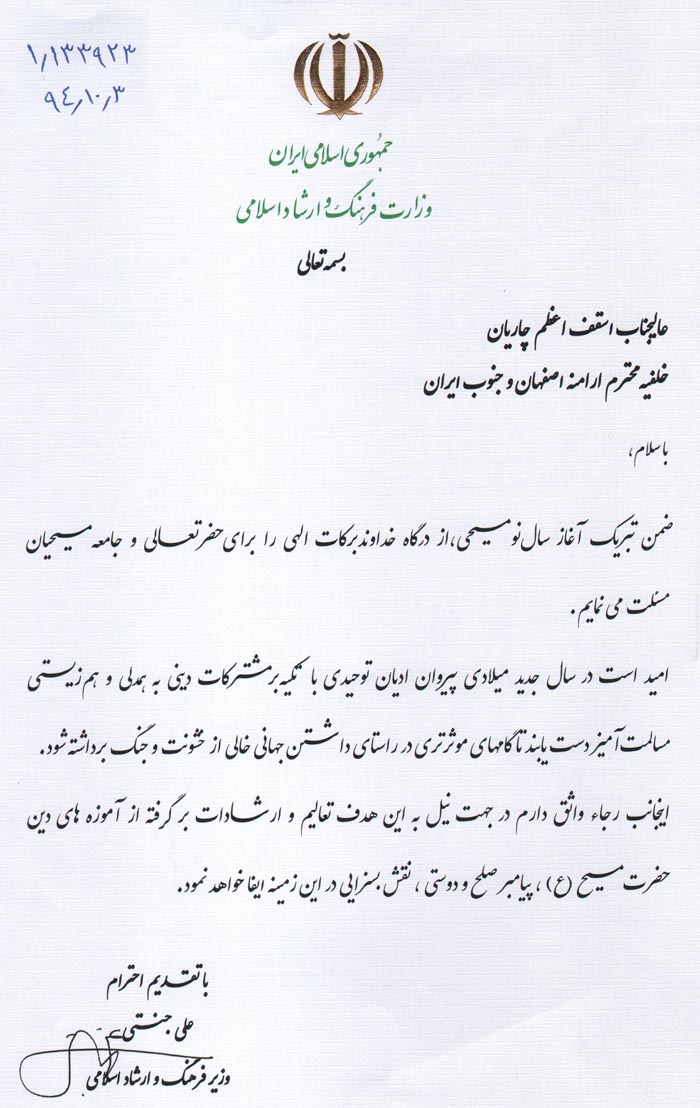 ۱٫۱۳۳۹۲۳
۹۴٫۱۰٫۳
جمهوری اسلامی ایران
وزارت فرهنگ و ارشاد اسلامی
بسمه تعالی
عالیجناب اسقف اعظم چاریان
خلفیه محترم ارامنه اصفهان و جنوب ایران
باسلام،
ضمن تبریک آغاز سال نو مسیحی،از درگاه خداوند برکات الهی را برای حضرتعالی و جامعه مسیحیان
مسئلت می نمایم.
امید است در سال جدید میلادی پیروان ادیان توحیدی با تکیه بر مشترکات دینی به همدلی و هم زیستی
مسالمت آمیز دست یابند تا گامهای موثرتری در راستای داشتن جهانی خالی از خشونت و جنگ برداشته شود.
اینجانب رجاء واثق دارم در جهت نیل به این هدف تعالیم و ارشادات بر گرفته از آموزه های دین
حضرت مسیح (ع) ، پیامبر صلح و دوستی ، نقش بسزایی در این زمینه ایفا خواهد نمود.
با تقدیم احترام
علی جنتی
وزیر فرهنگ و ارشاد اسلامی